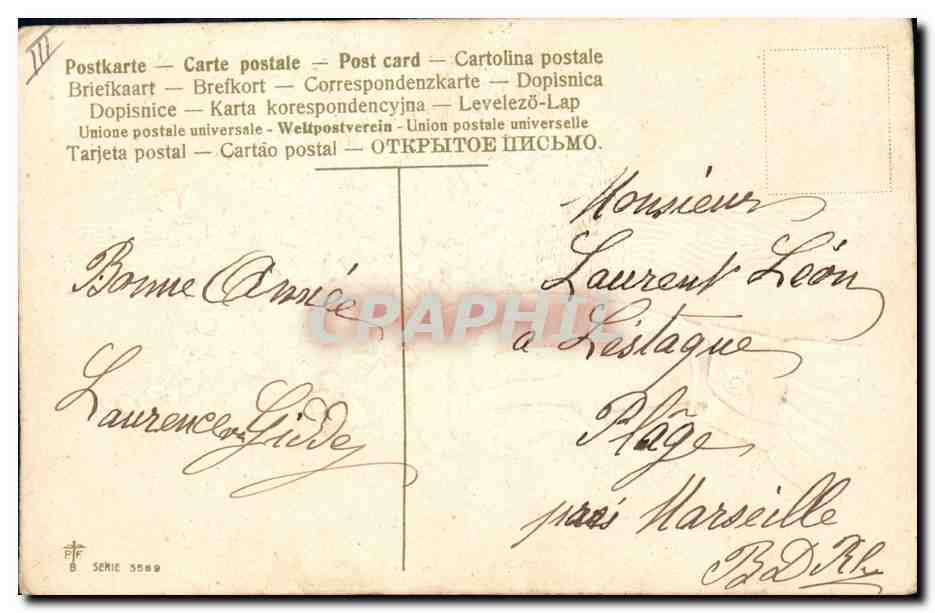 III
Postkarte — Carte postale — Post card — Cartolina postale
Briefkaart — Brefkort — Correspondenzkarte — Dopisnica
Dopisnice — Karta korespondencyjna — Levelező-Lap
Unione postale universale - Weltpostverein - Union postale universelle
Tarjeta postal — Cartão postal — ОТКРЫТОЕ ПИСЬМО.
Bonne Année
Laurence
Monsieur
Laurent Léon
a Lestaque
Plâge
près Marseille
B D Rh
CPAPHIL
P F
B SERIE 5569